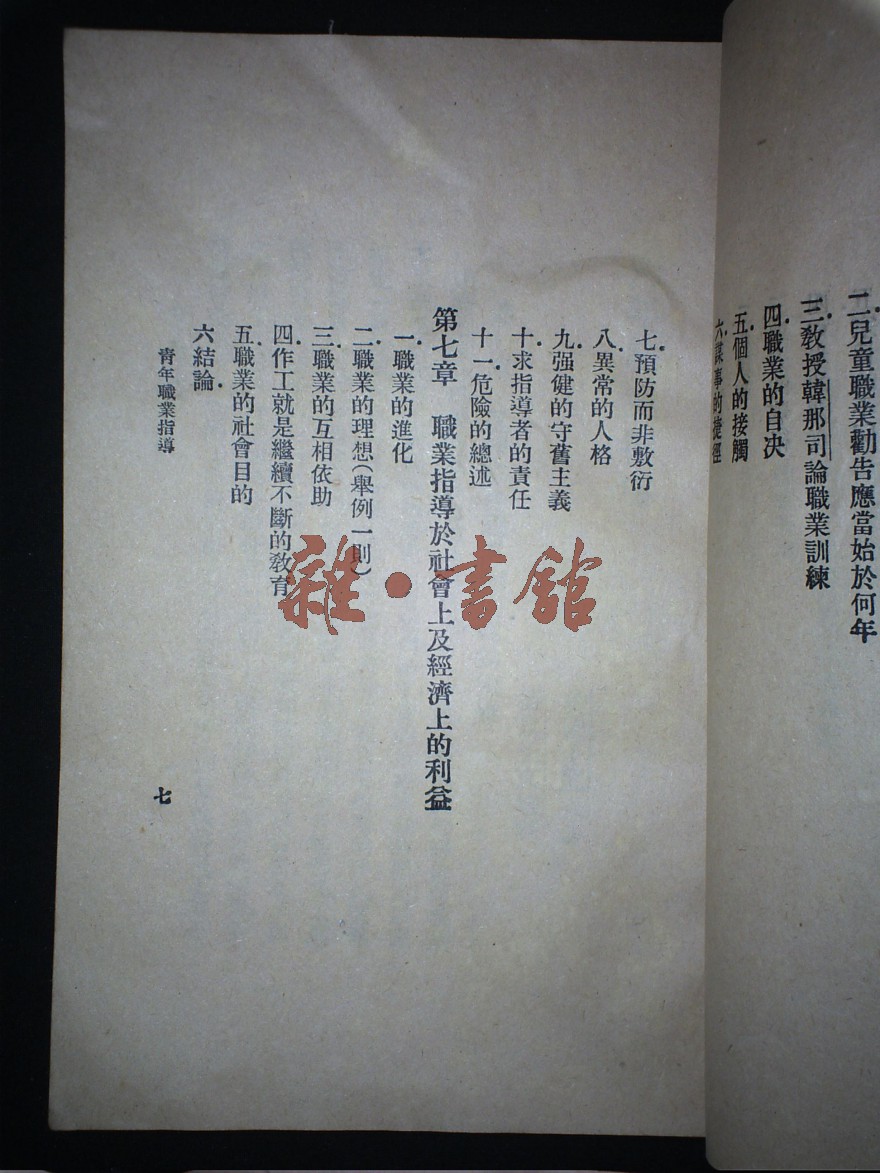 二.兒童職業勸告應當始於何年
三.教授韓那司論職業訓練
四.職業的自决
五.個人的接觸
六.謀事的捷徑
七.預防而非敷衍
八.異常的人格
九.强健的守舊主義
十.求指導者的責任
十一.危險的總述
第七章 職業指導於社會上及經濟上的利益
一.職業的進化
二.職業的理想(舉例一則)
三.職業的互相依助
四.作工就是繼續不斷的教育
五.職業的社會目的
六.結論
青年職業指導
七
雜·書館